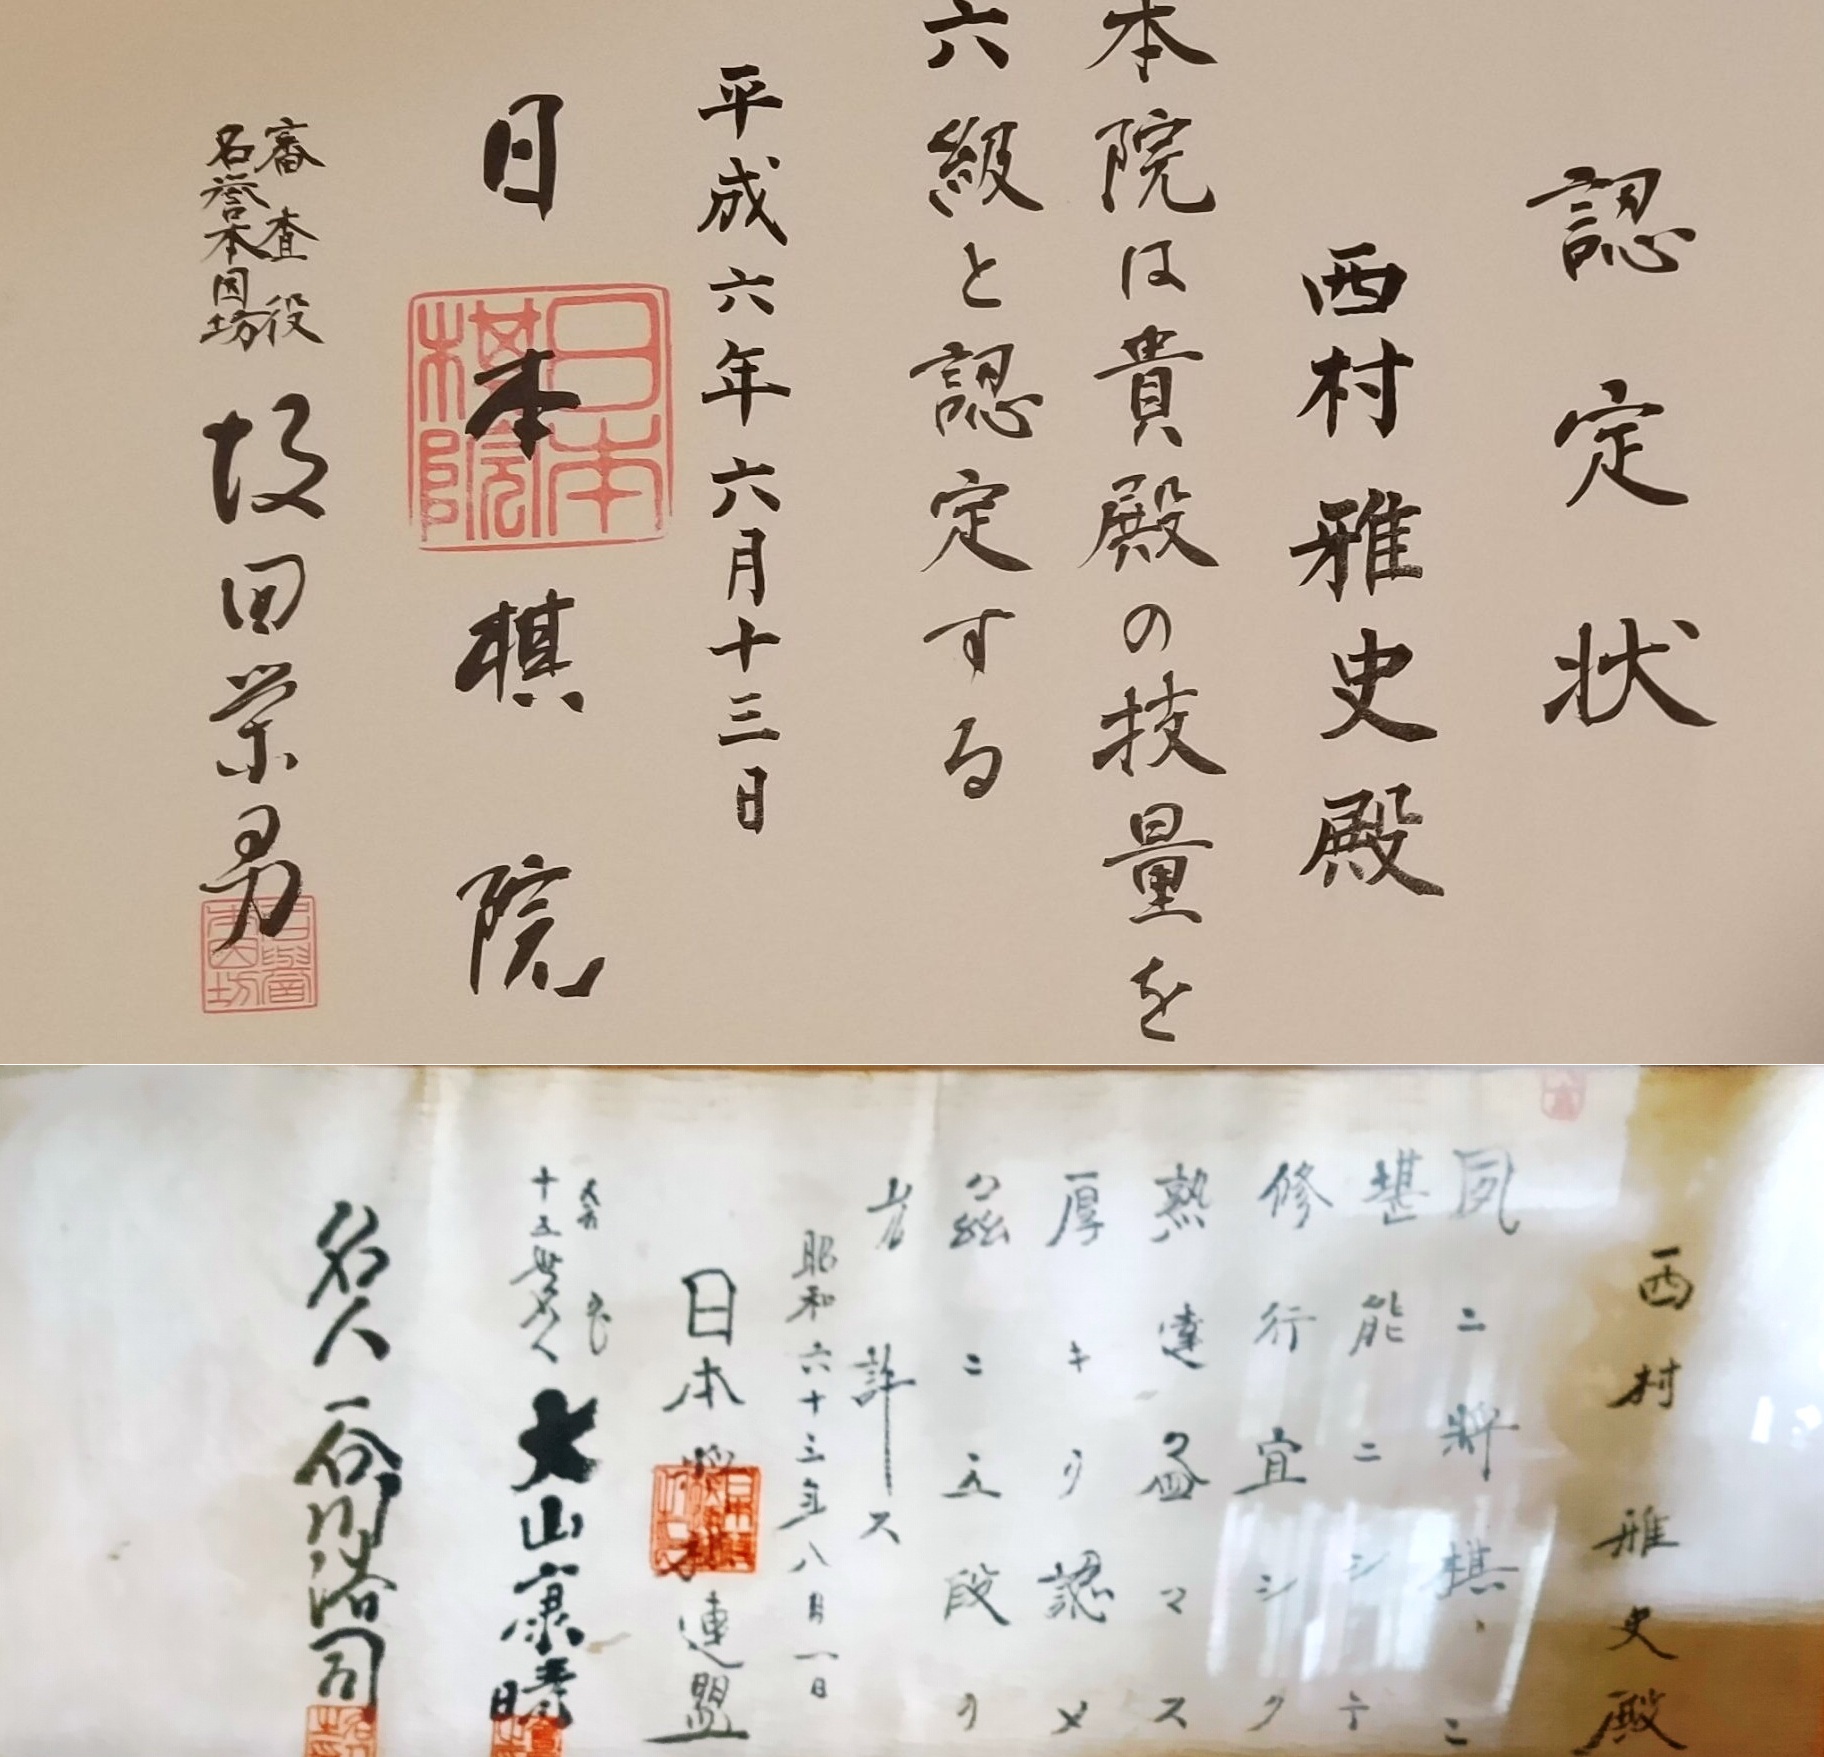 認定状
西村雅史殿
本院は貴殿の技量を
六級と認定する
平成六年六月十三日
日本棋院
日本棋院
審査役
名誉本因坊
坂田栄男
名誉本因坊
西村雅史殿
夙ニ将棋ニ
堪能ニシテ
修行宜シク
熟達益マス
厚キヲ認メ
茲ニ五段ヲ
允許ス
昭和六十三年八月一日
日本将棋連盟
会長
十五世名人
大山康晴
名人 谷川浩司